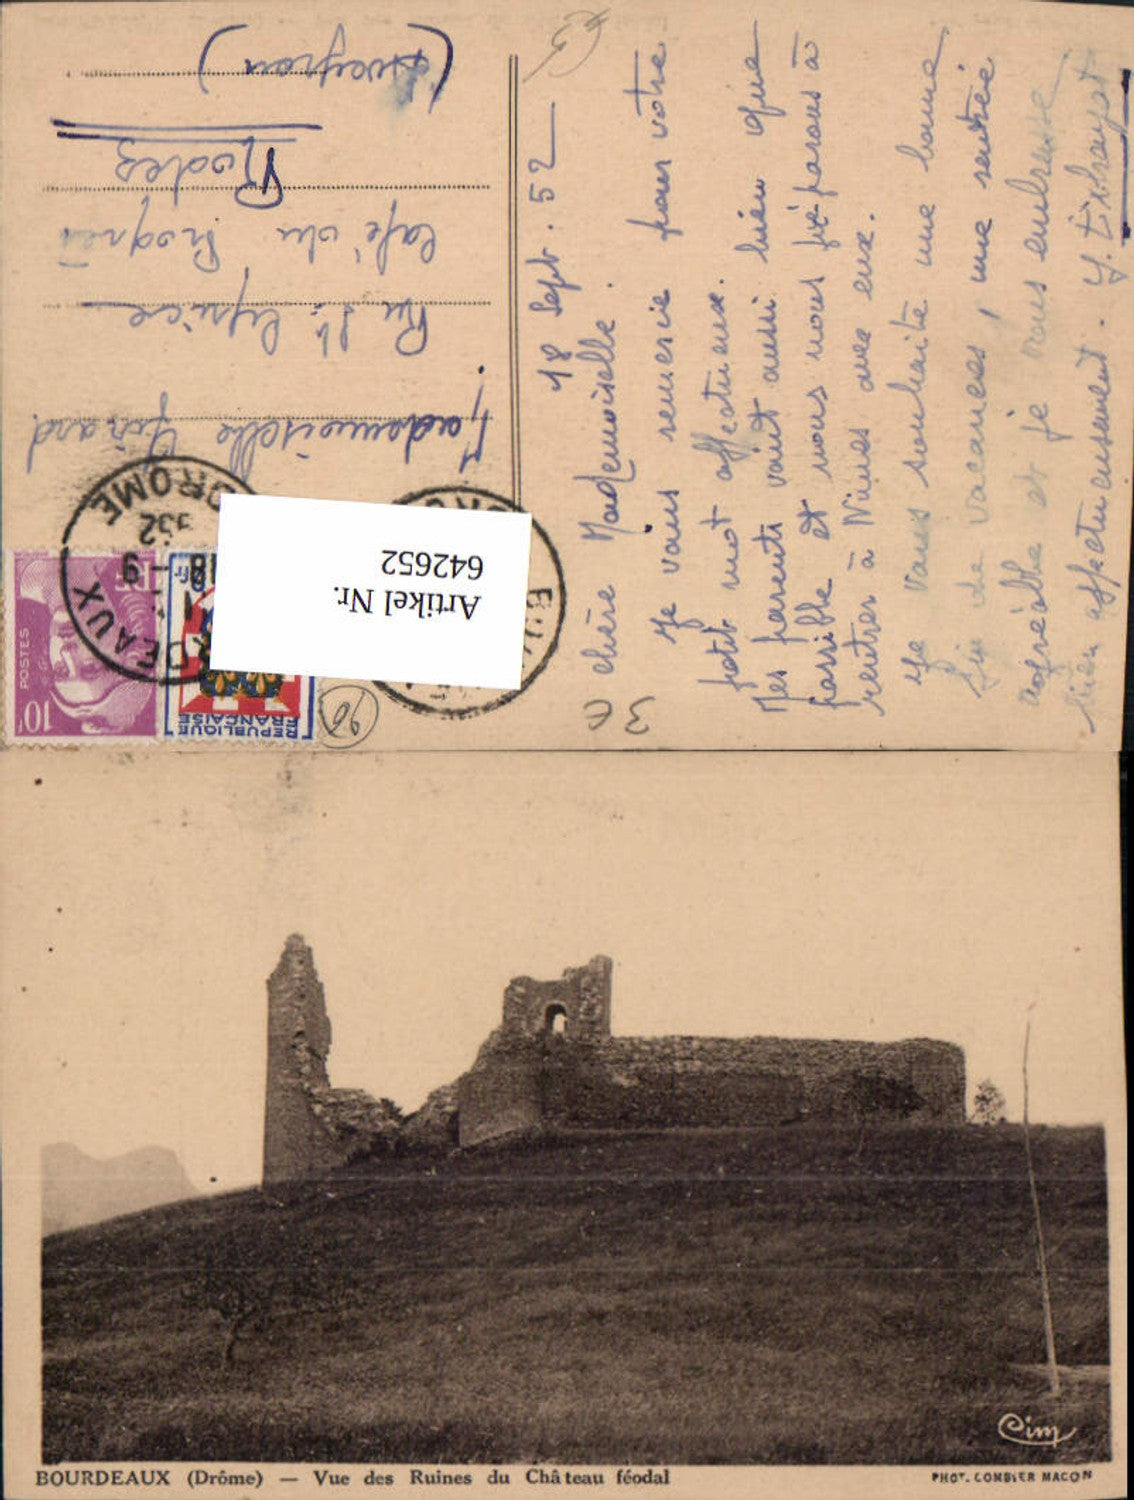 18 Sept. 52
chère Mademoiselle.
Je vous remercie pour votre
petit mot affectueux.
Mes parents vont aussi bien que
possible et nous nous préparons à
rentrer à Nîmes avec eux.
Je vous souhaite une bonne
fin de vacances, une rentrée
agréable et je vous embrasse
bien affectueusement.
Mademoiselle
Rue St
café du Progrès
Rodez
(Aveyron)
3€
Artikel Nr.
642652
BOURDEAUX
DROME
18 - 9
POSTES
RF
10F
REPUBLIQUE
FRANCAISE
Cim
BOURDEAUX (Drôme) — Vue des Ruines du Château féodal
PHOT. COMBIER MACON